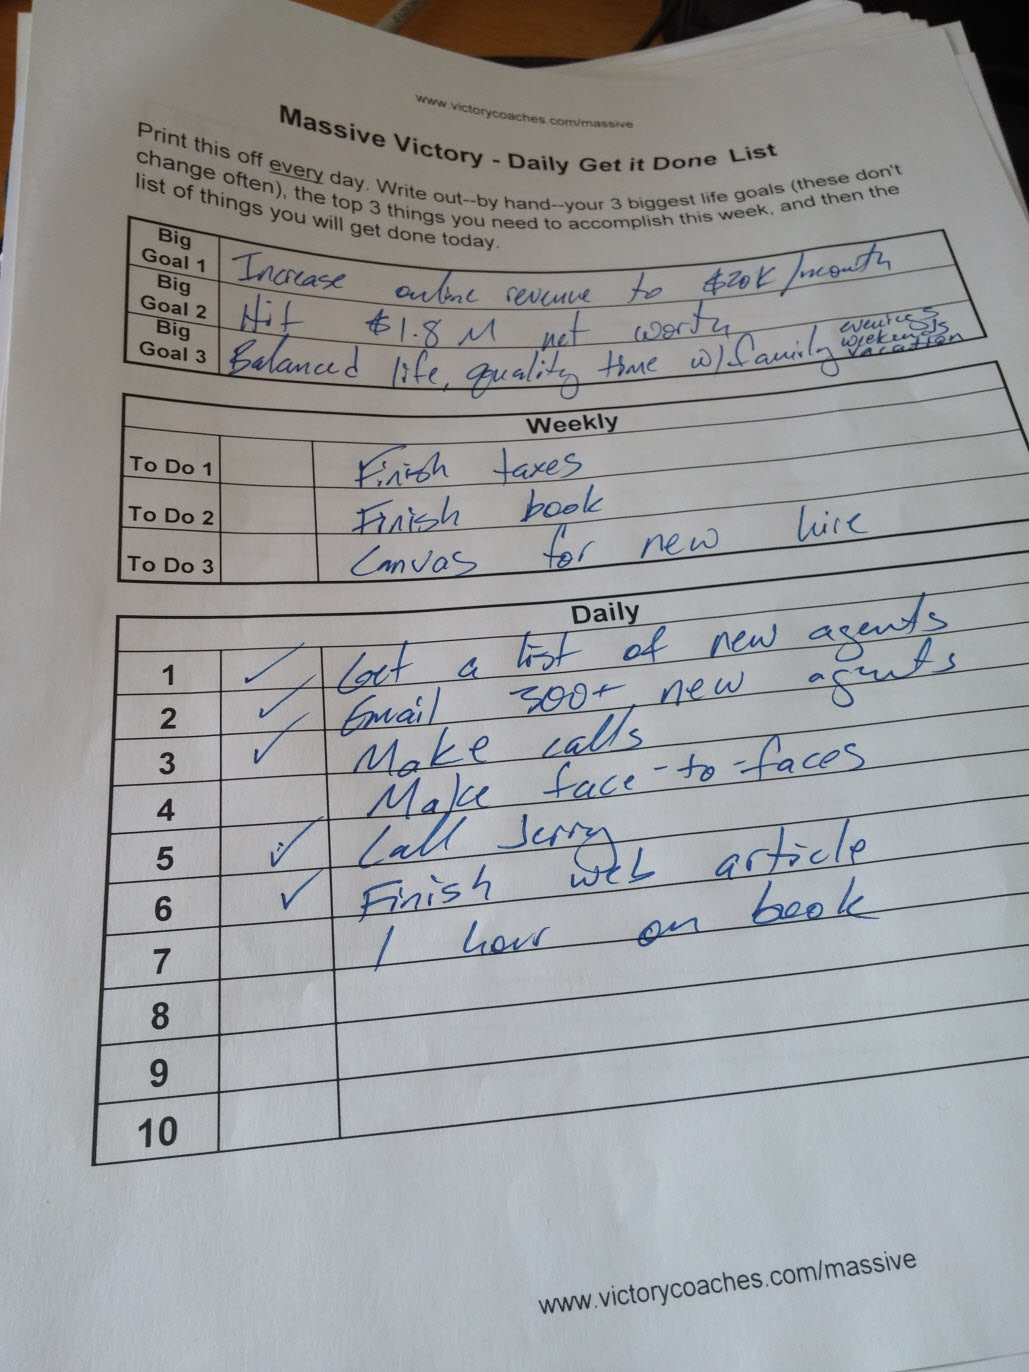 www.victorycoaches.com/massive
Massive Victory - Daily Get it Done List
Print this off every day. Write out--by hand--your 3 biggest life goals (these don't
change often), the top 3 things you need to accomplish this week, and then the
list of things you will get done today.
Big Goal 1 Increase online revenue to $20K/month
Big Goal 2 Hit $1.8 M net worth
Big Goal 3 Balanced life, quality time w/family evenings weekends vacation
Weekly
To Do 1 Finish taxes
To Do 2 Finish book
To Do 3 Canvas for new hire
Daily
1 ✓ Get a list of new agents
2 ✓ Email 300+ new agents
3 ✓ Make calls
4 Make face-to-faces
5 ✓ Call Jerry
6 ✓ Finish web article
7 1 hour on book
8
9
10
www.victorycoaches.com/massive